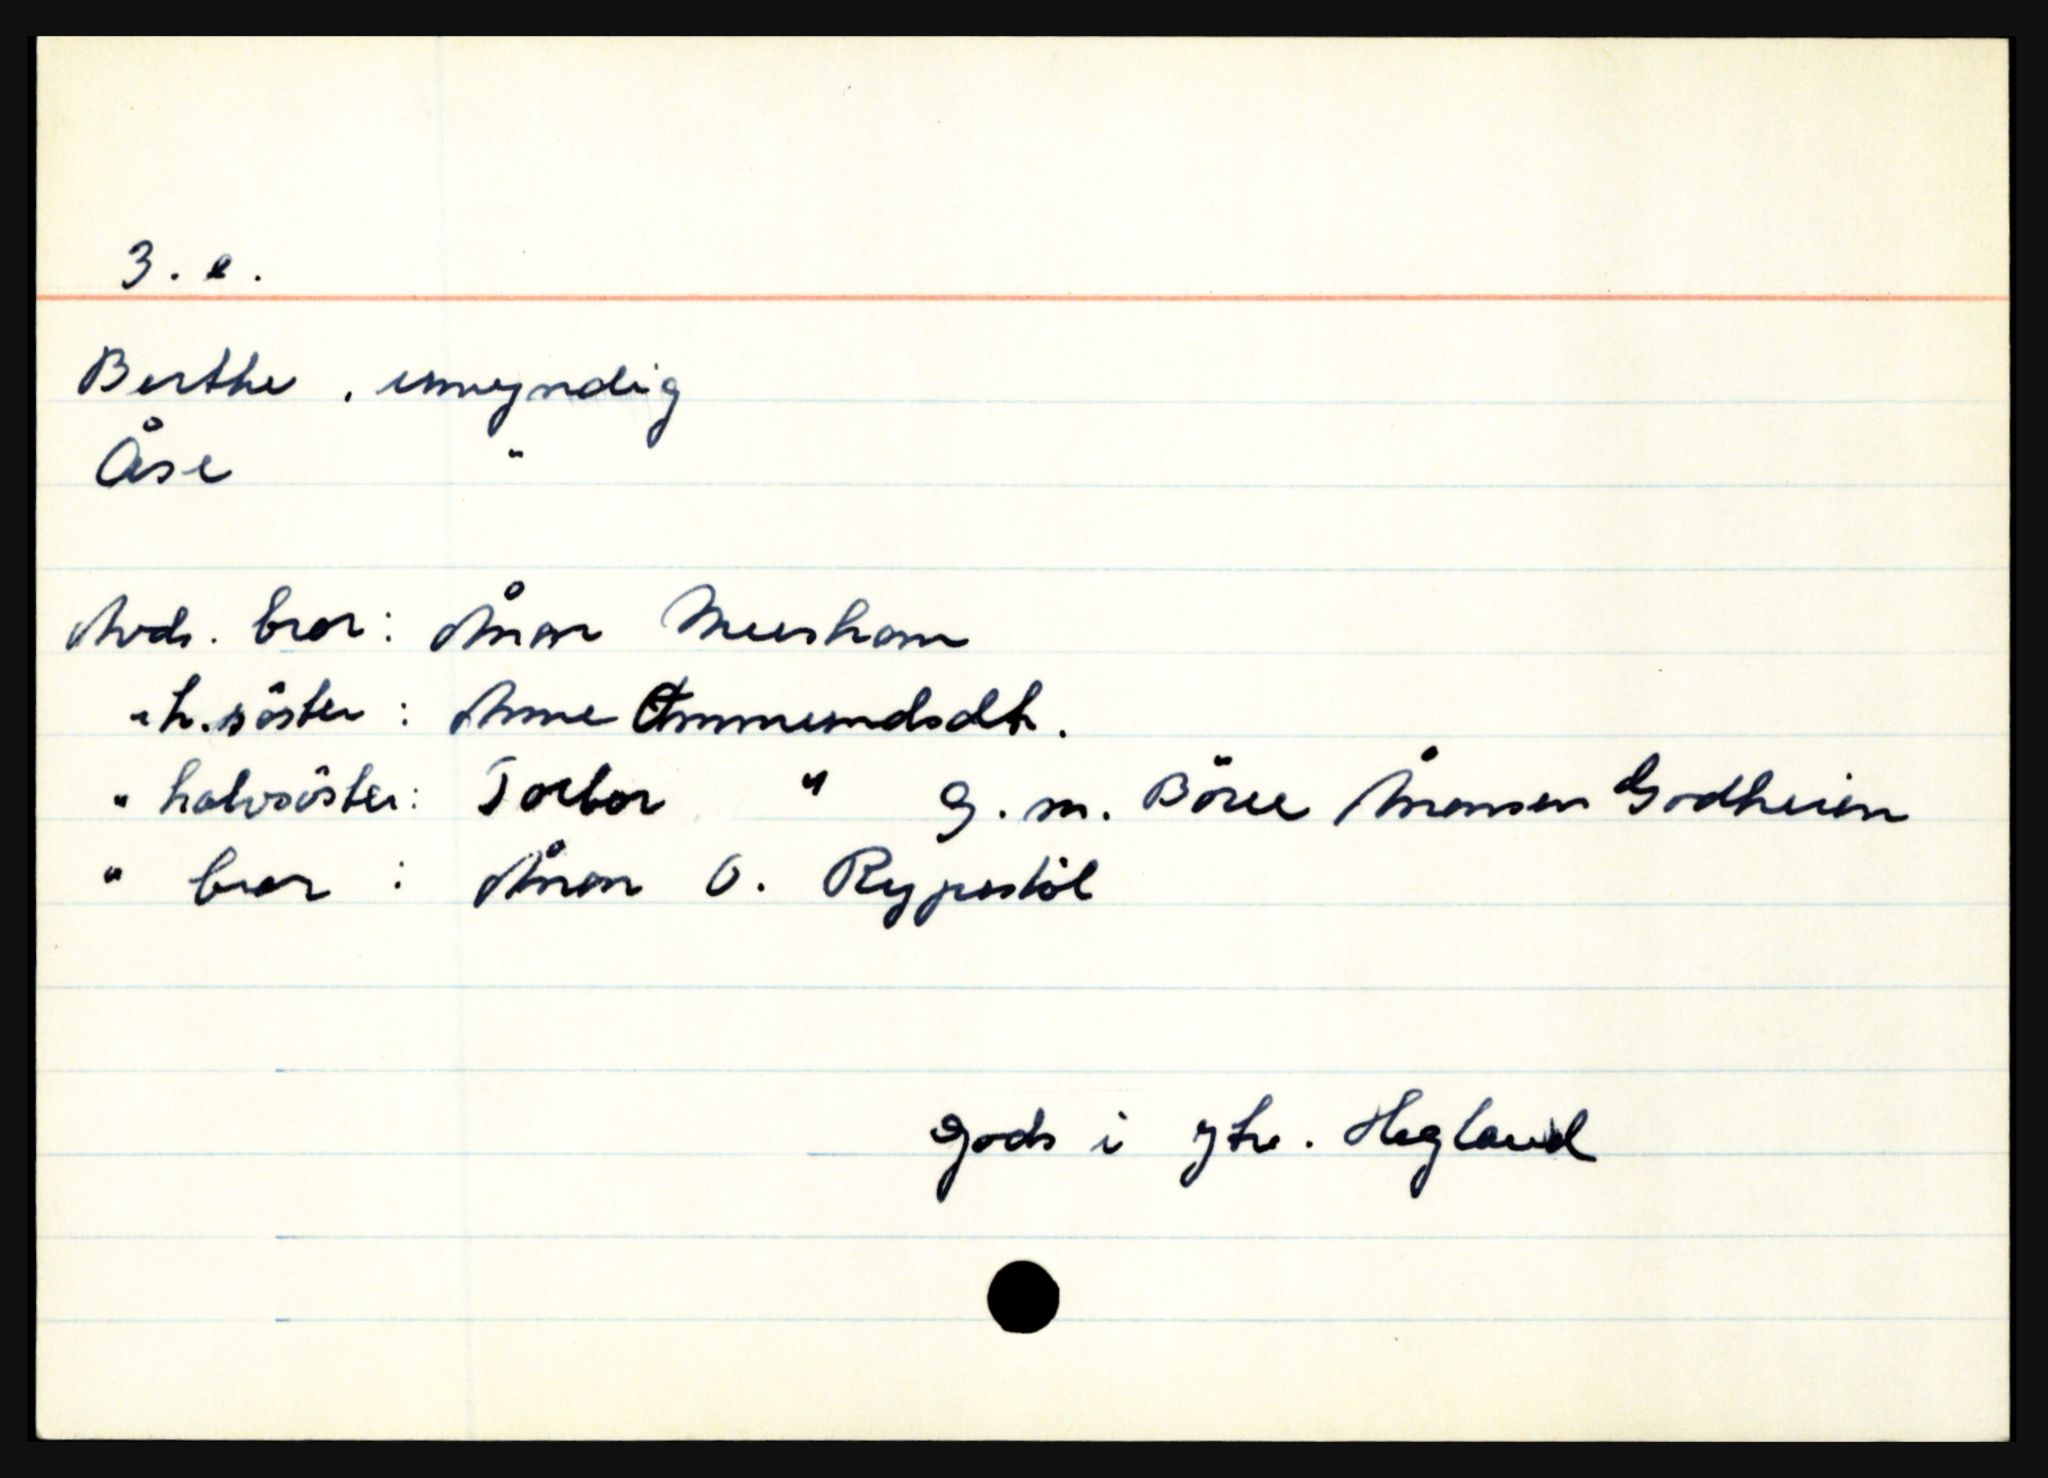 3. e.
Berthe, umyndig
Åse "
Avds. bror: Ånon Meesham
" h. söster: Anne Ommundsdtr.
" halvsöster: Torbor " G. m. Böree Ånonsen Godheien
" bror : Ånon O. Rypestöl
Gods i ytre. Hegland